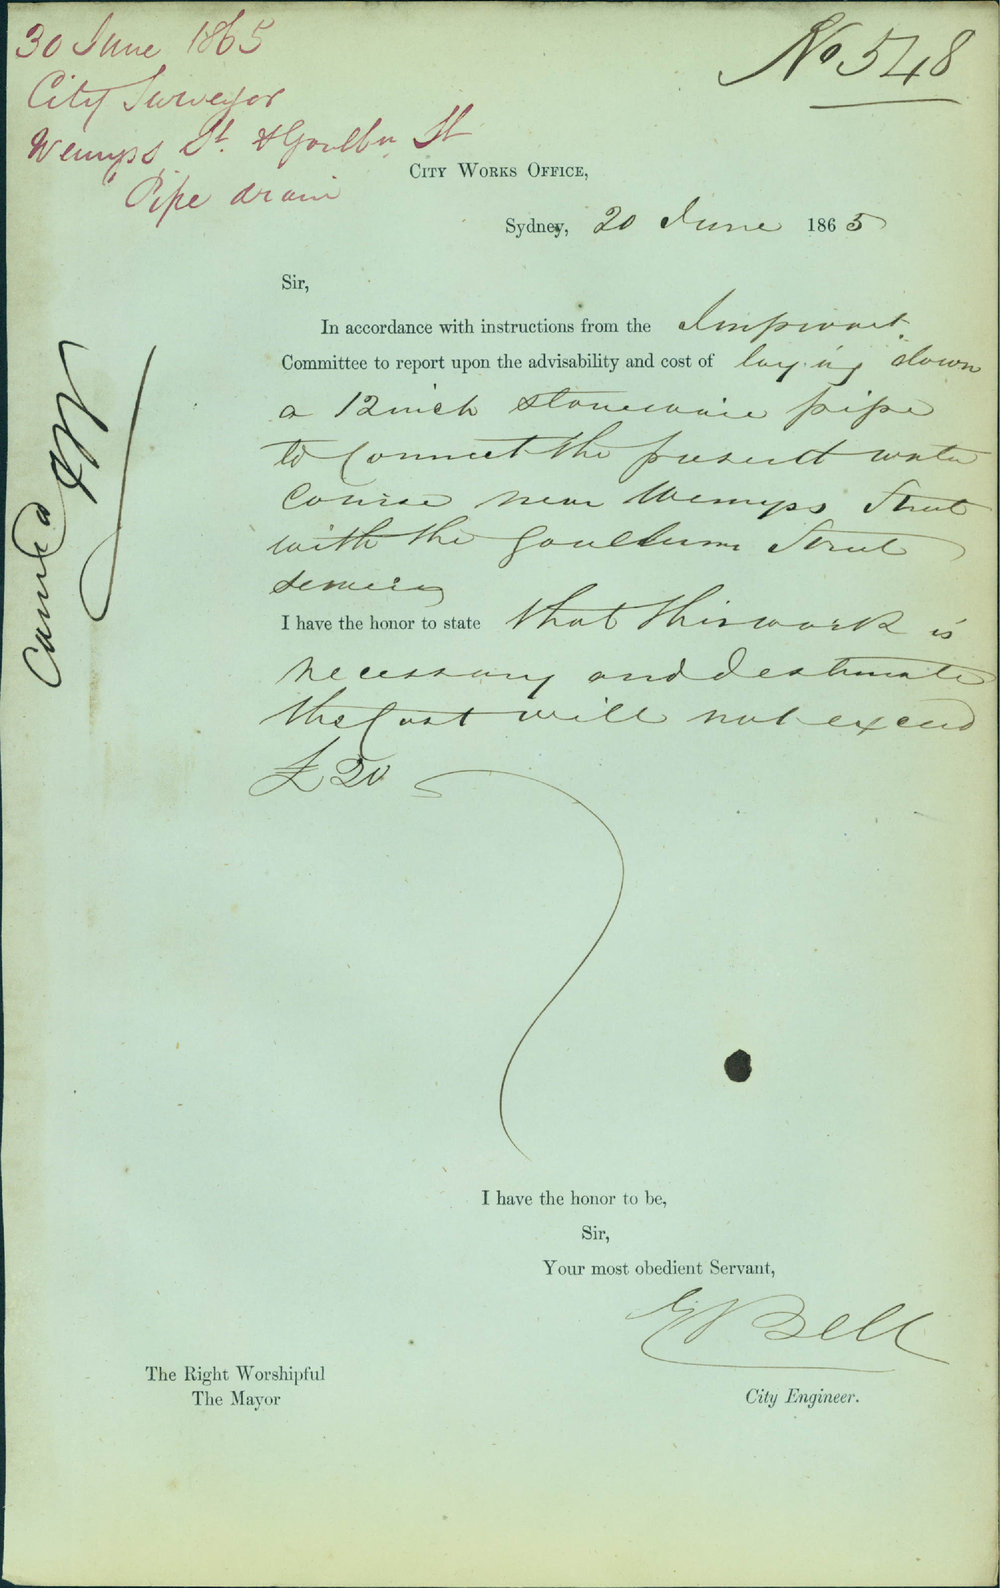 30 June 1865
City Surveyor
Wemyss St. & Goulbn St
Pipe drain
No 548
CITY WORKS OFFICE,
Sydney, 20 June 1865
Sir,
In accordance with instructions from the Improvmt.
Committee to report upon the advisability and cost of laying down
a 12 inch stoneware pipe
to connect the present water
course near Wemyss Street
with the Goulburn Street
sewer
I have the honor to state that this work is
necessary and I estimate
the Cost will not exceed
£20
I have the honor to be,
Sir,
Your most obedient Servant,
E Bell
City Engineer.
The Right Worshipful
The Mayor